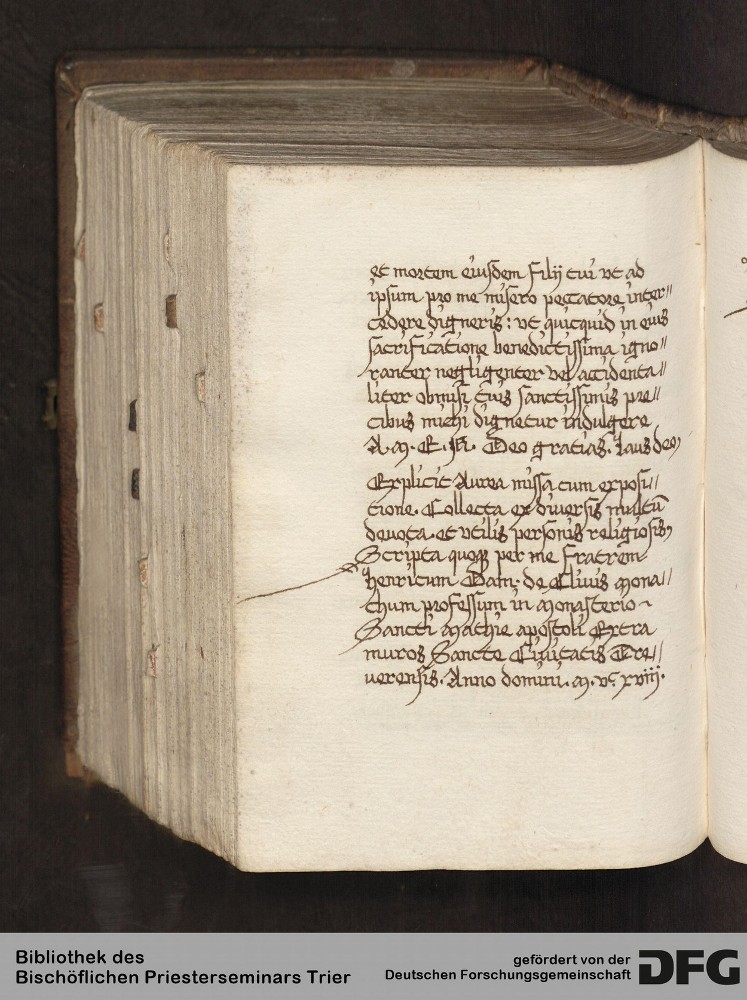 et mortem eiusdem filij tui vt ad
ipsum pro me misero peccatore inter〃
cedere digneris: vt quicquid in eius
sacrificatione benedictissima igno〃
ranter negligenter vel accidenta〃
liter obmisi tuis sanctissimis pre〃
cibus michi dignetur indulgere
A. M. E. N. Deo gratias. laus deo
Explicit Aurea missa cum exposi〃
tione. Collecta ex diuersis multũ
deuota. et vtilis personis religiosis,
Scripta quoqꝫ per me fratrem
henricum Dam. de Cliuis mona〃
chum professum in monasterio
Sancti mathie apostoli Extra
muros Sancte Ciuitatis Tre〃
uerensis. Anno domini. m. vᶜ. xviij.
Bibliothek des
Bischöflichen Priesterseminars Trier
gefördert von der
Deutschen Forschungsgemeinschaft
DFG